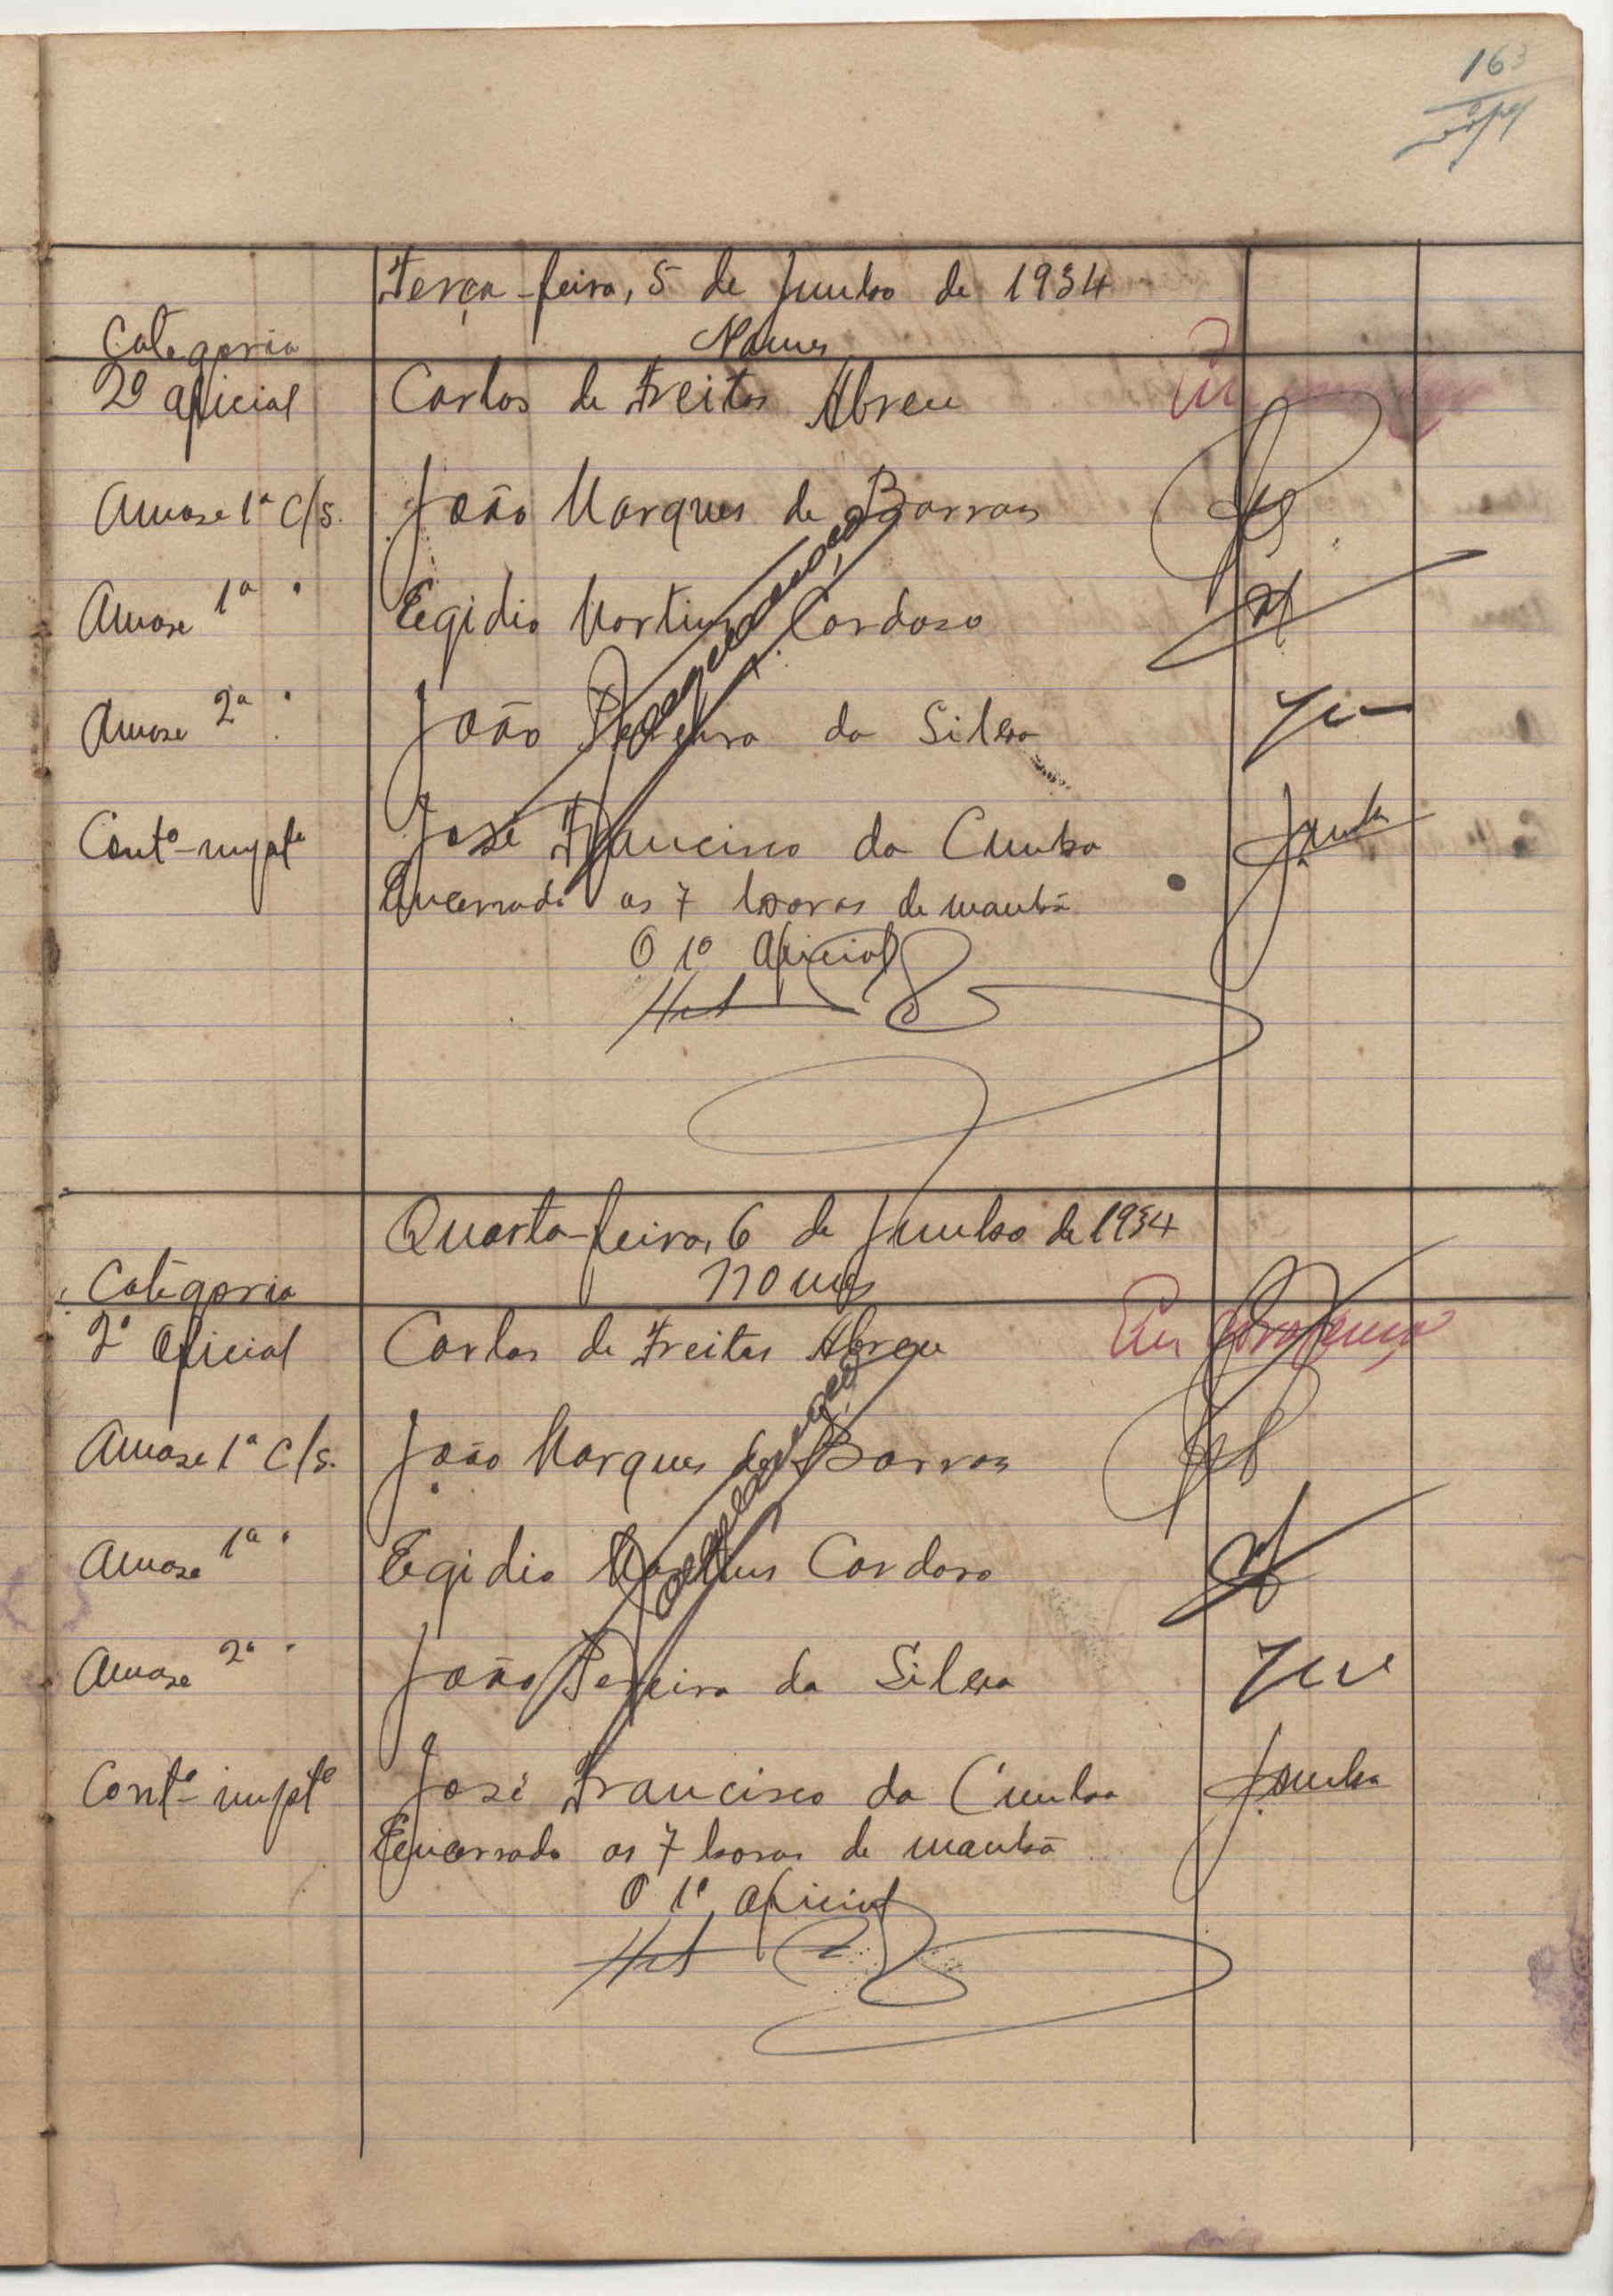 163
Terça-feira, 5 de Junho de 1934
Categoria Nomes
2º oficial Carlos de Freitas Abreu Em
Amase 1ª c/s. João Marques de Barros
Amase 1ª " Egidio Martins Cardoso
Amase 2ª " João Pereira da Silva
Contº-impte José Francisco da Cunha
Encerrado as 7 horas de manhã
O 1º Oficial
Quarta-feira, 6 de Junho de 1934
Categoria Nomes
2º Oficial Carlos de Freitas Abreu Em
Amase 1ª c/s. João Marques de Barros
Amase 1ª " Egidio Martins Cardoso
Amase 2ª " João Pereira da Silva
Contº-impte José Francisco da Cunha JCunha
Encerrado as 7 horas de manhã
O 1º Oficial